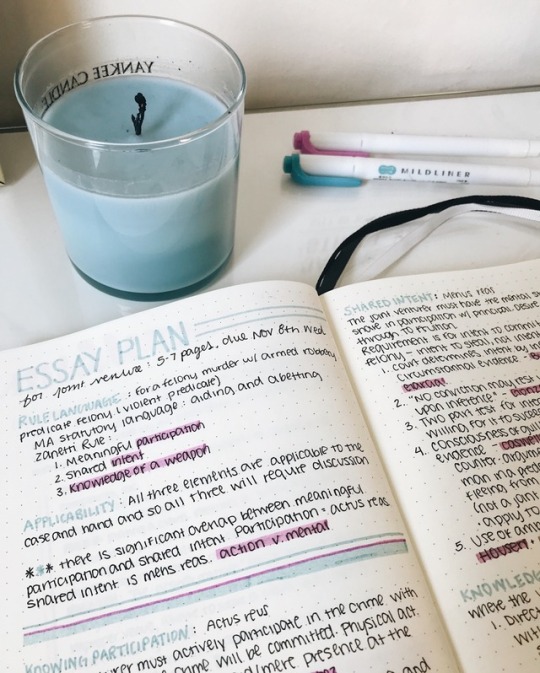 YANKEE CANDLE
MILDLINER
ESSAY PLAN
for joint venture: 5-7 pages, due Nov 8th Wed
RULE LANGUAGE: for a felony murder w/ armed robbery
predicate felony (violent predicate)
MA statutory language: aiding and abetting
Zanetti Rule:
1. Meaningful participation
2. Shared intent
3. Knowledge of a weapon
APPLICABILITY: All three elements are applicable to the
case and hand and so all three will require discussion
*** there is significant overlap between meaningful
participation and shared intent. Participation = actus reas
shared intent is mens reas. action v. mental
KNOWING PARTICIPATION: Actus reus
must actively participate in the crime with
crime will be committed. Physical act
mere presence at the
and
SHARED INTENT: Menus reas
The joint venturer must have the mental
state in participation w/ principal. Desire
through to fruition.
Requirement is for intent to commit
felony - intent to steal, not
1. Court determines intent by
circumstantial evidence -
2. "NO conviction may rest
upon inference" -
3. Two part test for
willing, for it to
4. Consciousness of
evidence -
counter
man in a
fleeing from
(not a joint
apply to
5. Use of
KNOWLEDGE
where the
1. Direct
with